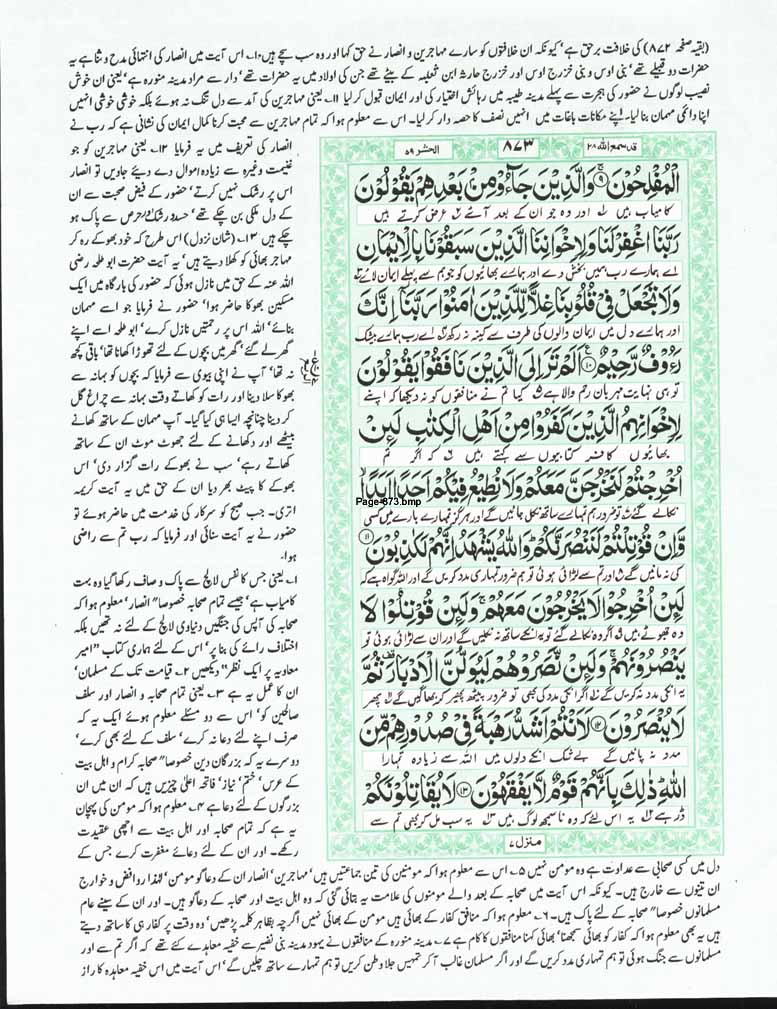 (بقیہ صفحہ ۸۷۲) کی خلافت برحق ہے' کیونکہ ان خلافتوں کو سارے مہاجرین و انصار نے حق کہا اور وہ سب سچے ہیں ۱۰۔ اس آیت میں انصار کی انتہائی مدح و ثنا ہے یہ
حضرات دو قبیلے تھے' بنی اوس و بنی خزرج اوس اور خزرج حارثہ ابن ثعلبہ کے بیٹے تھے جن کی اولاد میں یہ حضرات تھے' دار سے مراد مدینہ منورہ ہے' یعنی ان خوش
نصیب لوگوں نے حضور کی ہجرت سے پہلے مدینہ طیبہ میں رہائش اختیار کی اور ایمان قبول کر لیا ۱۱۔ یعنی مہاجرین کی آمد سے دل تنگ نہ ہوئے بلکہ خوشی خوشی انہیں
اپنا دائمی مہمان بنا لیا۔ اپنے مکانات باغات میں انہیں نصف کا حصہ دار کر لیا۔ اس سے معلوم ہوا کہ تمام مہاجرین سے محبت کرنا کمال ایمان کی نشانی ہے کہ رب نے
قد سمع اللہ ۲۸
۸۷۳
الحشر ۵۹
الْمُفْلِحُوْنَ ۹ وَالَّذِيْنَ جَآءُوْ مِنْۢ بَعْدِهِمْ يَقُوْلُوْنَ
کامیاب ہیں اور وہ جو ان کے بعد آئے عرض کرتے ہیں
رَبَّنَا اغْفِرْ لَنَا وَلِاِخْوَانِنَا الَّذِيْنَ سَبَقُوْنَا بِالْاِيْمَانِ
اے ہمارے رب ہمیں بخش دے اور ہمارے بھائیوں کو جو ہم سے پہلے ایمان لائے
وَلَا تَجْعَلْ فِيْ قُلُوْبِنَا غِلًّا لِّلَّذِيْنَ اٰمَنُوْا رَبَّنَآ اِنَّكَ
اور ہمارے دل میں ایمان والوں کی طرف سے کینہ نہ رکھ اے رب ہمارے بیشک
رَءُوْفٌ رَّحِيْمٌ ۱۰ اَلَمْ تَرَ اِلَى الَّذِيْنَ نَافَقُوْا يَقُوْلُوْنَ
تو ہی نہایت مہربان رحم والا ہے کیا تم نے منافقوں کو نہ دیکھا کہ اپنے
لِاِخْوَانِهِمُ الَّذِيْنَ كَفَرُوْا مِنْ اَهْلِ الْكِتٰبِ لَئِنْ
بھائیوں کافر کتابیوں سے کہتے ہیں کہ اگر تم
اُخْرِجْتُمْ لَنَخْرُجَنَّ مَعَكُمْ وَلَا نُطِيْعُ فِيْكُمْ اَحَدًا اَبَدًا
Page-873.bmp
نکالے گئے تو ضرور ہم تمہارے ساتھ نکل جائیں گے اور ہرگز تمہارے بارے میں کسی
وَّاِنْ قُوْتِلْتُمْ لَنَنْصُرَنَّكُمْ وَاللّٰهُ يَشْهَدُ اِنَّهُمْ لَكٰذِبُوْنَ ۱۱
کی نہ مانیں گے اور تم سے لڑائی ہوئی تو ہم ضرور تمہاری مدد کریں گے اور اللہ گواہ ہے کہ
لَئِنْ اُخْرِجُوْا لَا يَخْرُجُوْنَ مَعَهُمْ وَلَئِنْ قُوْتِلُوْا لَا
وہ جھوٹے ہیں اگر وہ نکالے گئے تو یہ انکے ساتھ نہ نکلیں گے اور ان سے لڑائی ہوئی تو
يَنْصُرُوْنَهُمْ وَلَئِنْ نَّصَرُوْهُمْ لَيُوَلُّنَّ الْاَدْبَارَ ثُمَّ
یہ انکی مدد نہ کریں گے اگر انکی مدد کی بھی تو ضرور پیٹھ پھیر کر بھاگیں گے پھر
لَا يُنْصَرُوْنَ ۱۲ لَاَنْتُمْ اَشَدُّ رَهْبَةً فِيْ صُدُوْرِهِمْ مِّنَ
مدد نہ پائیں گے بے شک انکے دلوں میں اللہ سے زیادہ تمہارا
اللّٰهِ ذٰلِكَ بِاَنَّهُمْ قَوْمٌ لَّا يَفْقَهُوْنَ ۱۳ لَا يُقَاتِلُوْنَكُمْ
ڈر ہے یہ اس لئے کہ وہ ناسمجھ لوگ ہیں یہ سب مل کر بھی تم سے
منزل ۷
انصار کی تعریف میں یہ فرمایا ۱۲۔ یعنی مہاجرین کو جو
غنیمت وغیرہ سے زیادہ اموال دے دیئے جاویں تو انصار
اس پر رشک نہیں کرتے' حضور کے فیض صحبت سے ان
کے دل ملکی بن چکے تھے' حسد و رشک و حرص سے پاک ہو
چکے ہیں ۱۳۔ (شان نزول) اس طرح کہ خود بھوکے رہ کر
مہاجر بھائی کو کھلا دیتے ہیں' یہ آیت حضرت ابو طلحہ رضی
اللہ عنہ کے حق میں نازل ہوئی کہ حضور کی بارگاہ میں ایک
مسکین بھوکا حاضر ہوا' حضور نے فرمایا جو اسے مہمان
بنائے' اللہ اس پر رحمتیں نازل کرے' ابو طلحہ اسے اپنے
گھر لے گئے' گھر میں بچوں کے لئے تھوڑا کھانا تھا' باقی کچھ
نہ تھا' آپ نے اپنی بیوی سے فرمایا کہ بچوں کو بہانہ سے
بھوکا سلا دینا اور رات کو کھاتے وقت بہانہ سے چراغ گل
کر دینا چنانچہ ایسا ہی کیا گیا۔ آپ مہمان کے ساتھ کھانے
بیٹھے اور دکھانے کے لئے جھوٹ موٹ ان کے ساتھ
کھاتے رہے' سب نے بھوکے رات گزار دی' اس
بھوکے کا پیٹ بھر دیا ان کے حق میں یہ آیت کریمہ
اتری۔ جب صبح کو سرکار کی خدمت میں حاضر ہوئے تو
حضور نے یہ آیت سنائی اور فرمایا کہ رب تم سے راضی
ہوا۔
۱۔ یعنی جس کا نفس لالچ سے پاک و صاف رکھا گیا وہ بہت
کامیاب ہے' جیسے تمام صحابہ خصوصاً انصار' معلوم ہوا کہ
صحابہ کی آپس کی جنگیں دنیاوی لالچ کے لئے نہ تھیں بلکہ
اختلاف رائے کی بنا پر' اس کے لئے ہماری کتاب "امیر
معاویہ پر ایک نظر" دیکھیں ۲۔ قیامت تک کے مسلمان'
ان کا عمل یہ ہے ۳۔ یعنی تمام صحابہ و انصار اور سلف
صالحین کو' اس سے دو مسئلے معلوم ہوئے ایک یہ کہ
صرف اپنے لئے دعا نہ کرے' سلف کے لئے بھی کرے'
دوسرے یہ کہ بزرگان دین خصوصاً صحابہ کرام و اہل بیت
کے عرس' ختم' نیاز' فاتحہ اعلیٰ چیزیں ہیں کہ ان میں ان
بزرگوں کے لئے دعا ہے ۴۔ معلوم ہوا کہ مومن کی پہچان
یہ ہے کہ تمام صحابہ اور اہل بیت سے اچھی عقیدت
رکھے۔ اور ان کے لئے دعائے مغفرت کرے جس کے
دل میں کسی صحابی سے عداوت ہے وہ مومن نہیں ۵۔ اس سے معلوم ہوا کہ مومنین کی تین جماعتیں ہیں' مہاجرین' انصار ان کے دعاگو مومن' لہٰذا روافض و خوارج
ان تینوں سے خارج ہیں۔ کیونکہ اس آیت میں صحابہ کے بعد والے مومنوں کی علامت یہ بتائی گئی کہ وہ اہل بیت اور صحابہ کے دعاگو ہیں۔ اور ان کے سینے عام
مسلمانوں خصوصاً صحابہ کے لئے پاک ہیں۔ ۶۔ معلوم ہوا کہ منافق کفار کے بھائی ہیں مومن کے بھائی نہیں اگرچہ بظاہر کلمہ پڑھیں' وہ وقت پر کفار ہی کا ساتھ دیتے
ہیں یہ بھی معلوم ہوا کہ کفار کو بھائی سمجھنا' بھائی کہنا منافقوں کا کام ہے ۷۔ مدینہ منورہ کے منافقوں نے یہود مدینہ بنی نضیر سے خفیہ معاہدے کئے تھے کہ اگر تم سے اور
مسلمانوں سے جنگ ہوئی تو ہم تمہاری مدد کریں گے اور اگر مسلمان غالب آ کر تمہیں جلا وطن کریں تو ہم تمہارے ساتھ چلیں گے' اس آیت میں اس خفیہ معاہدہ کا راز